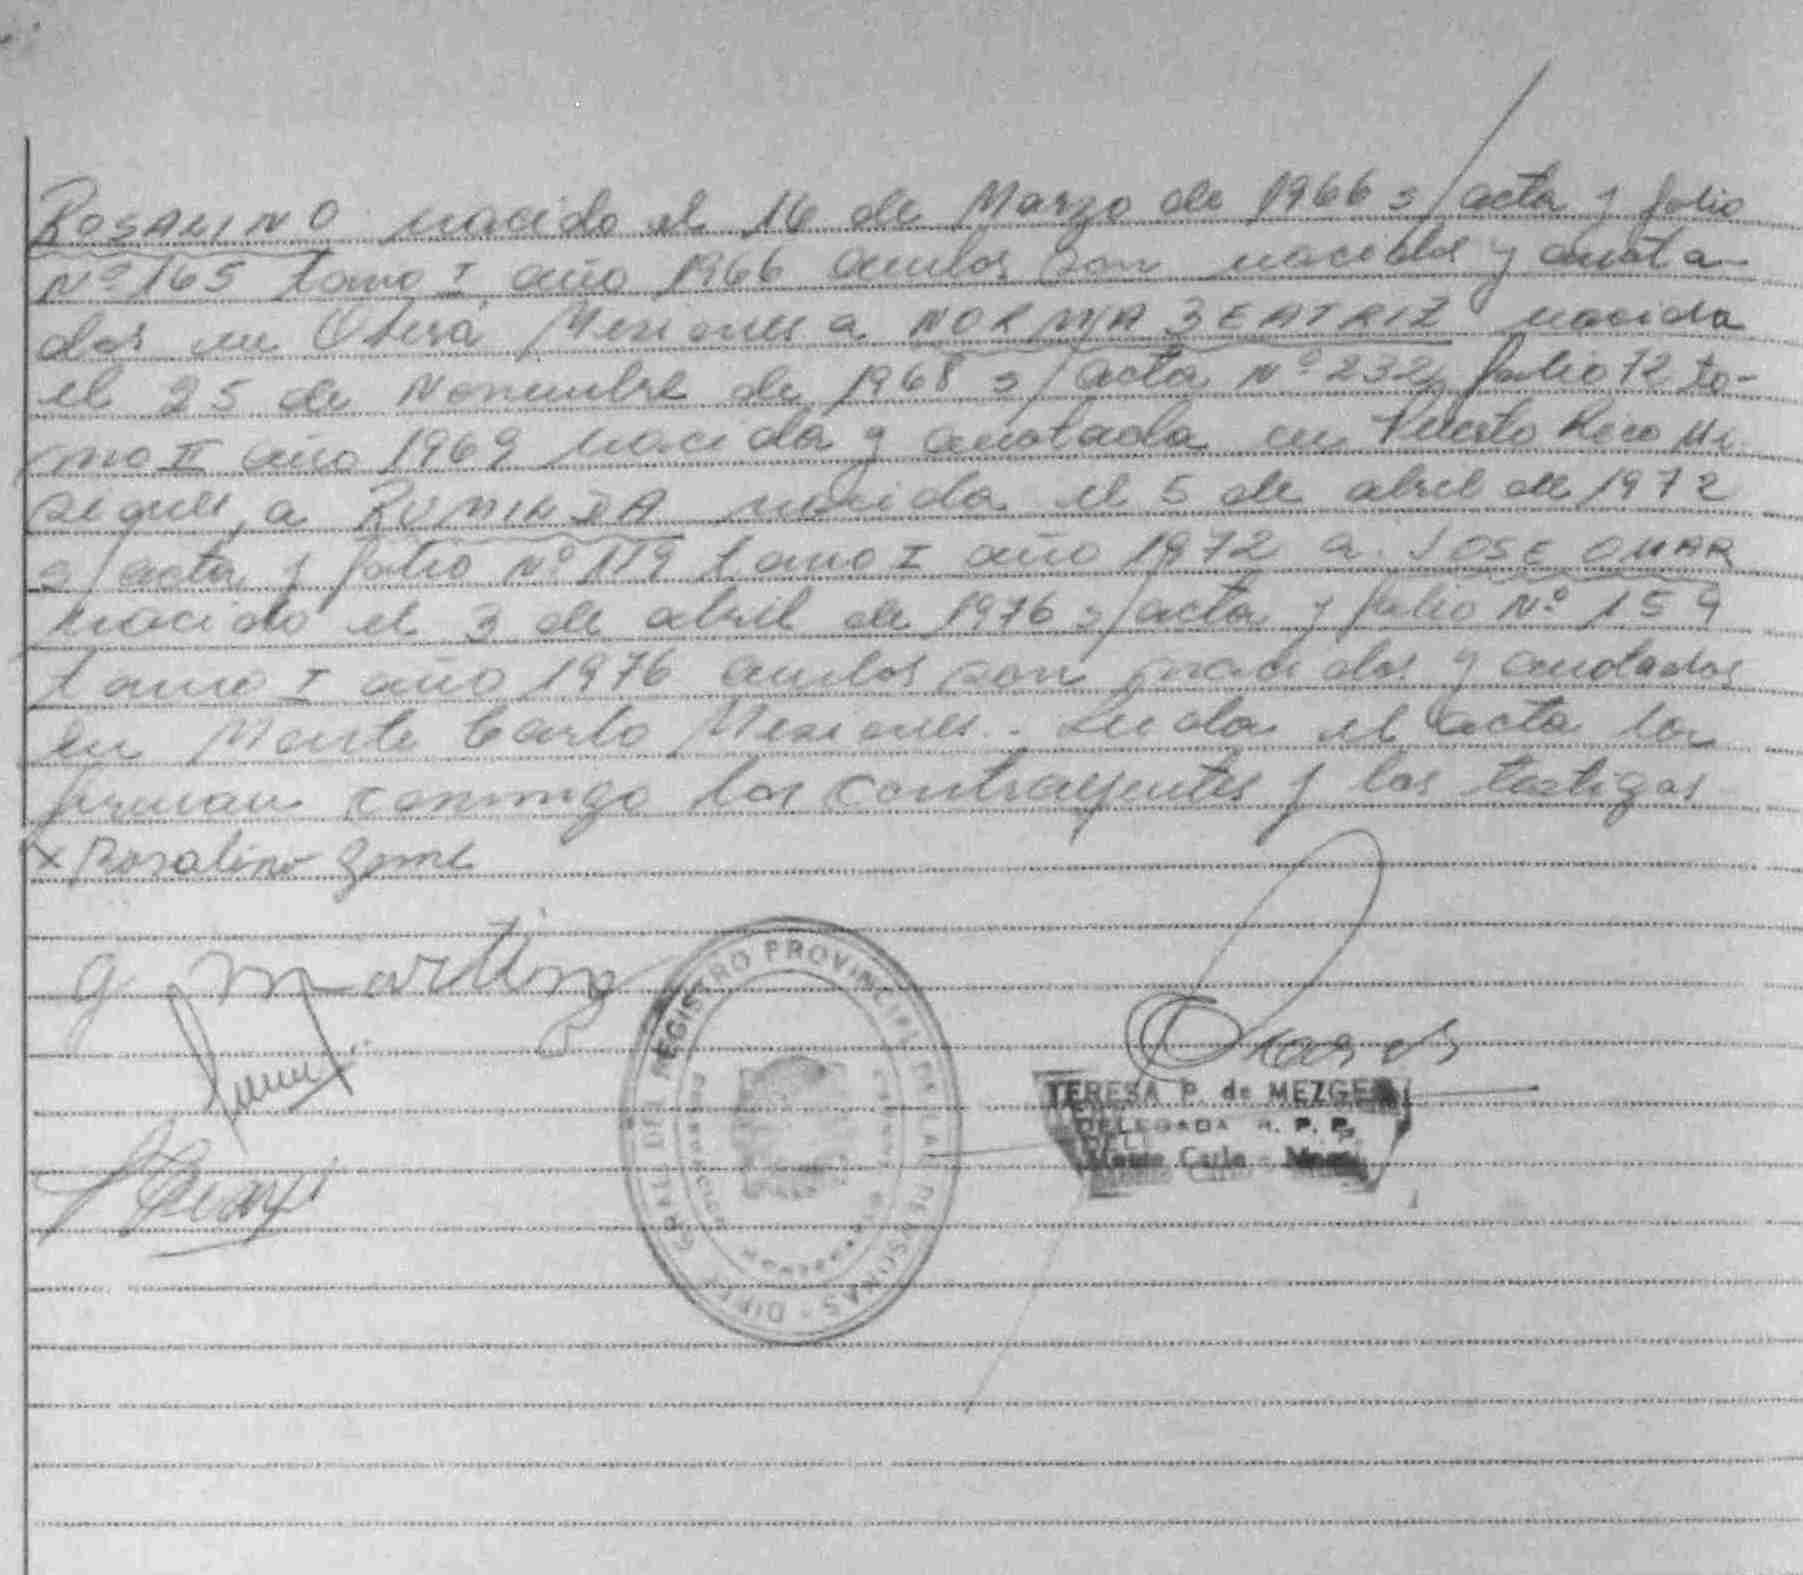 ROSALINO nacido el 16 de Marzo de 1966 s/acta y folio
Nº 165 tomo I año 1966 ambos son nacidos y anota-
dos en Oberá Misiones a NORMA BEATRIZ nacida
el 25 de Noviembre de 1968 s/acta Nº 232 folio 72 to-
mo II año 1969 nacida y anotada en Puerto Rico Mi-
siones, a ROMILDA nacida el 5 de abril de 1972
s/acta y folio Nº 119 tomo I año 1972 a JOSE OMAR
nacido el 3 de abril de 1976 s/acta y folio Nº 159
tomo I año 1976 ambos son nacidos y anotados
en Monte Carlo Misiones.. Leida el acta la
firman conmigo los contrayentes y los testigos
x Rosalino
g martinz
REGISTRO PROVINCIAL DE LAS PERSONAS - DIR. GRAL. DEL
TERESA P. de MEZGER
DELEGADA R. P. P.
Monte Carlo -